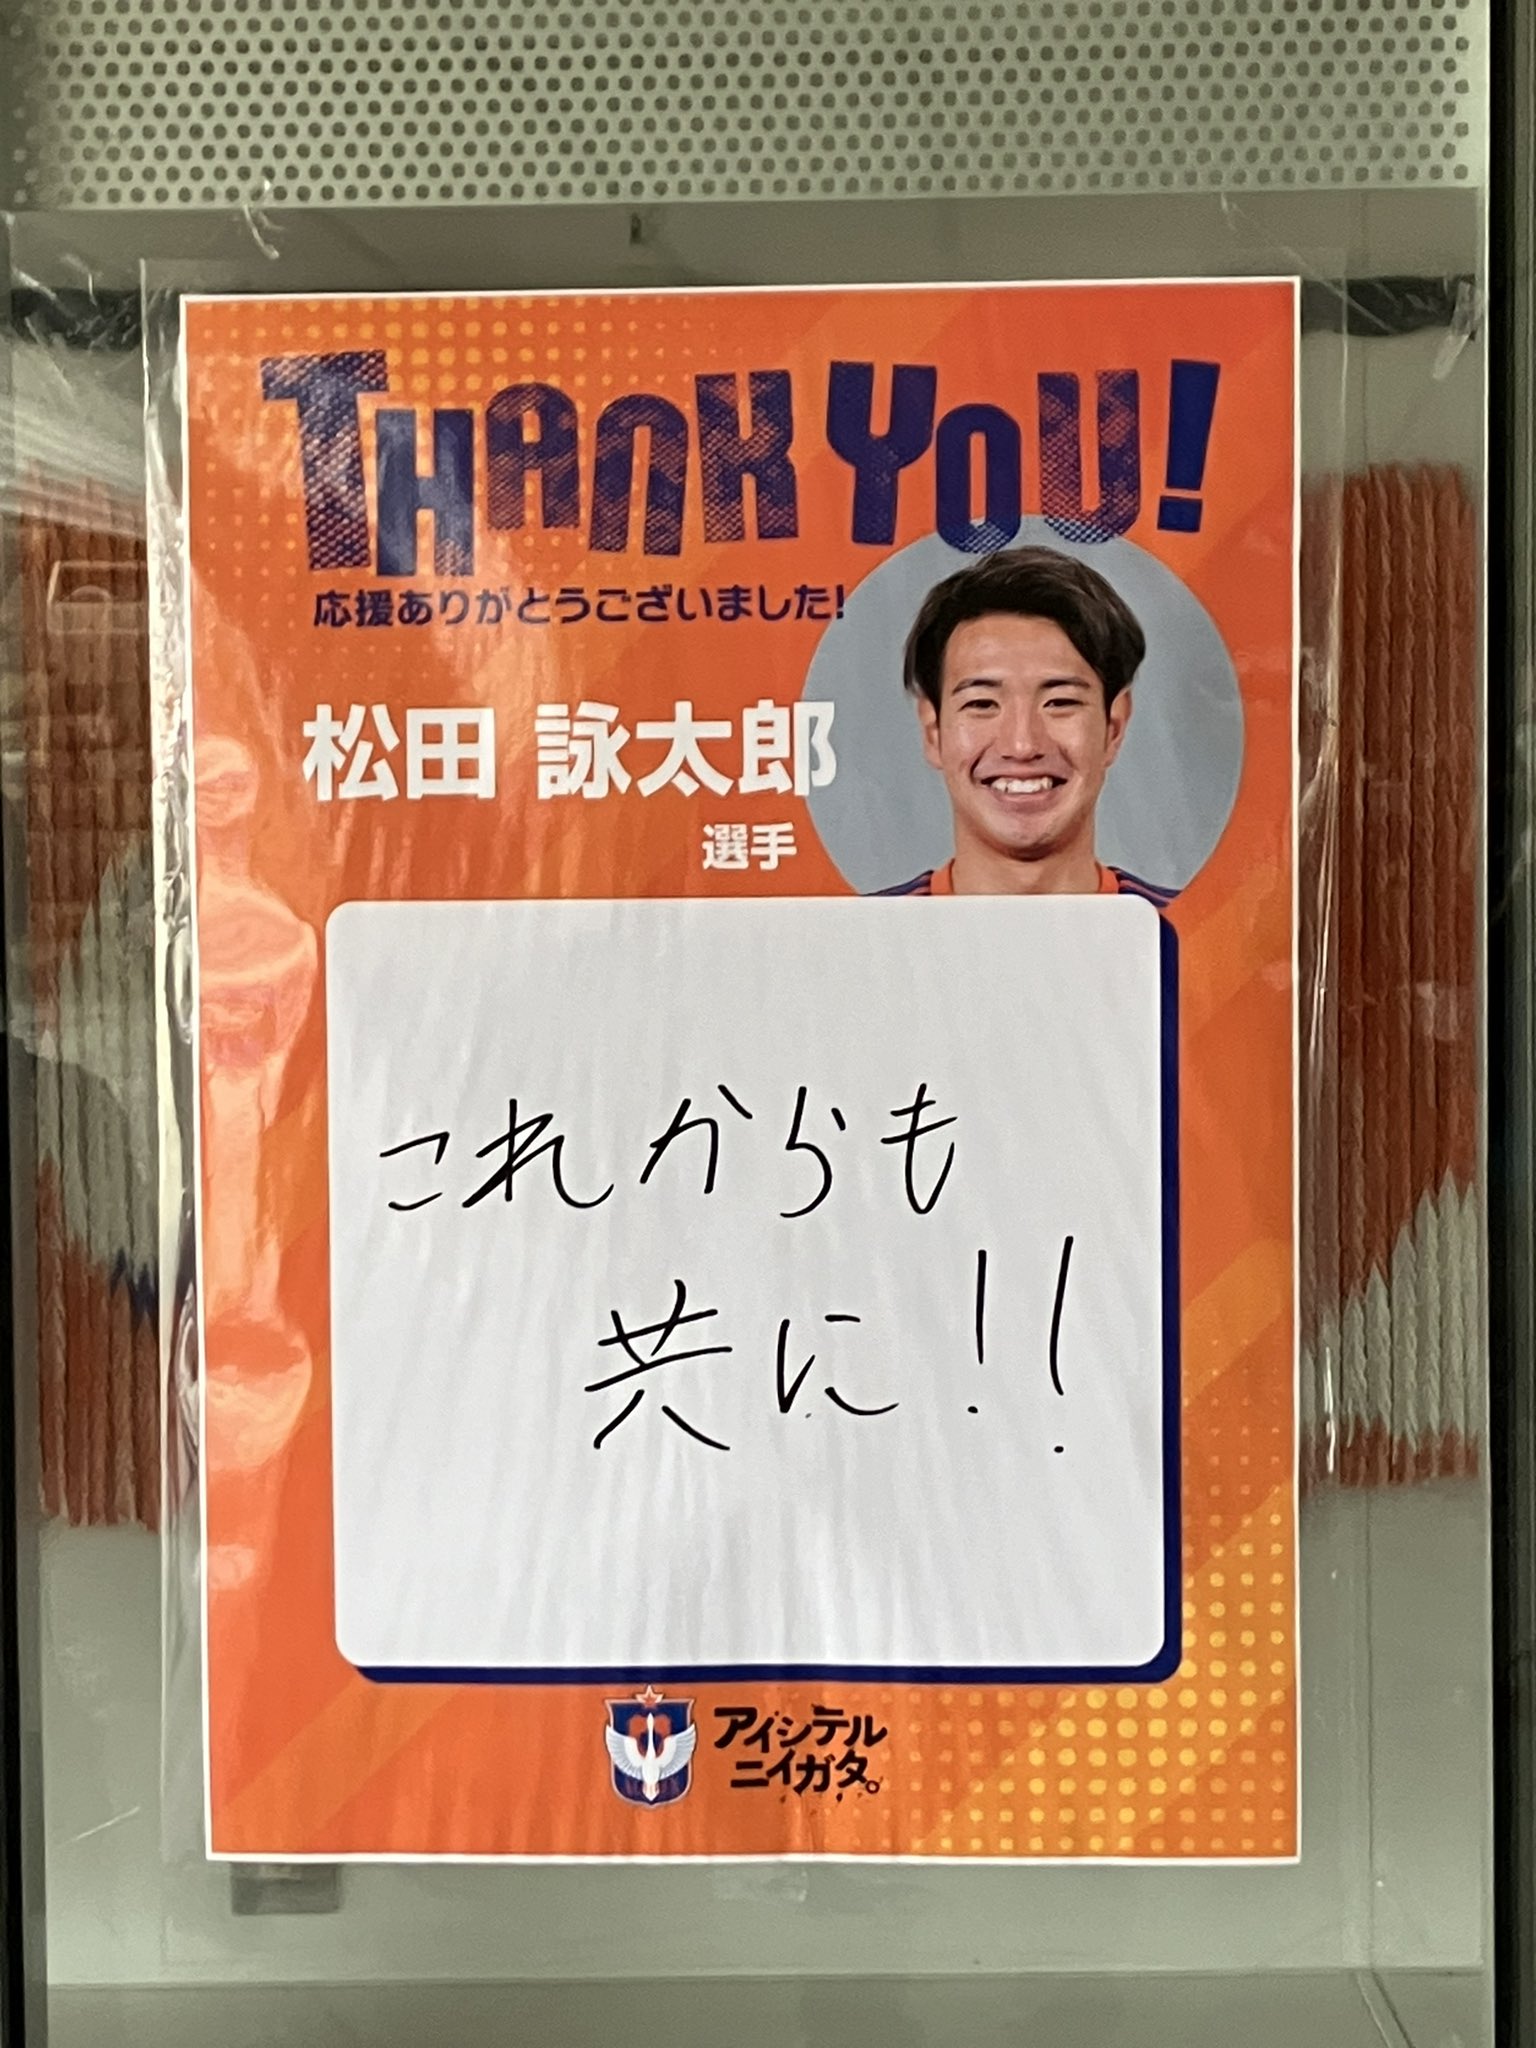 THANK YOU!
応援ありがとうございました!
松田 詠太郎
選手
これからも
共に!!
アイシテル
ニイガタ。